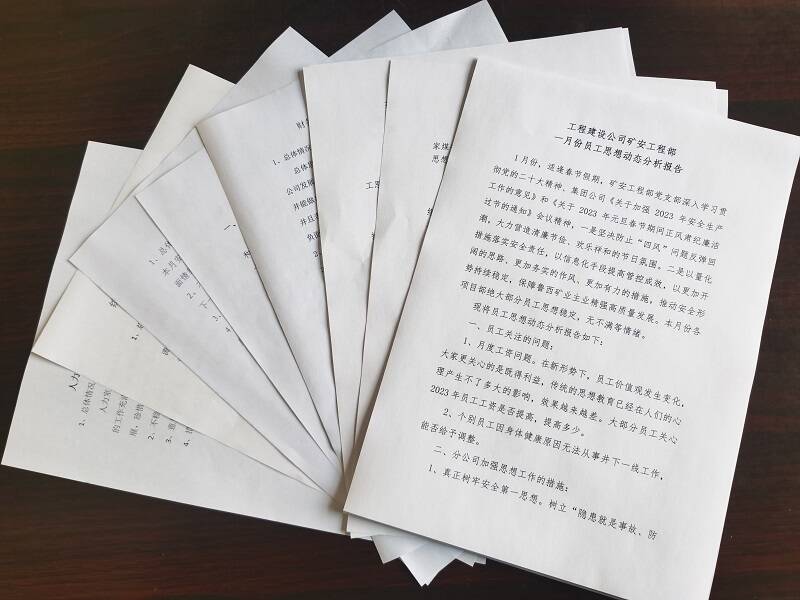 工程建设公司矿安工程部
一月份员工思想动态分析报告
1月份，适逢春节假期，矿安工程部党支部深入学习贯
彻党的二十大精神、集团公司《关于加强 2023 年安全生产
工作的意见》和《关于 2023 年元旦春节期间正风肃纪廉洁
过节的通知》会议精神，一是坚决防止“四风”问题反弹回
潮，大力营造清廉节俭、欢乐祥和的节日氛围。二是以量化
措施落实安全责任，以信息化手段提高管控成效，以更加开
阔的思路、更加务实的作风、更加有力的措施，推动安全形
势持续稳定，保障鲁西矿业主业精强高质量发展。本月份各
项目部绝大部分员工思想稳定，无不满等情绪。
现将员工思想动态分析报告如下：
一、员工关注的问题：
1、月度工资问题。在新形势下，员工价值观发生变化，
大家更关心的是既得利益，传统的思想教育已经在人们的心
理产生不了多大的影响，效果越来越差。大部分员工关心
2023年员工工资是否提高，提高多少。
2、个别员工因身体健康原因无法从事井下一线工作，
能否给予调整。
二、分公司加强思想工作的措施：
1、真正树牢安全第一思想。树立“隐患就是事故、防
家煤
思想
工
财
1、总体情况
总体
公司发展
并能做
并且
负面
一、
1、总体
本月安
面情
2、
下
3、
4、
人力
1、总体情况
人力资
的工作充
屈，珍惜
2、不稳
3、意
4、